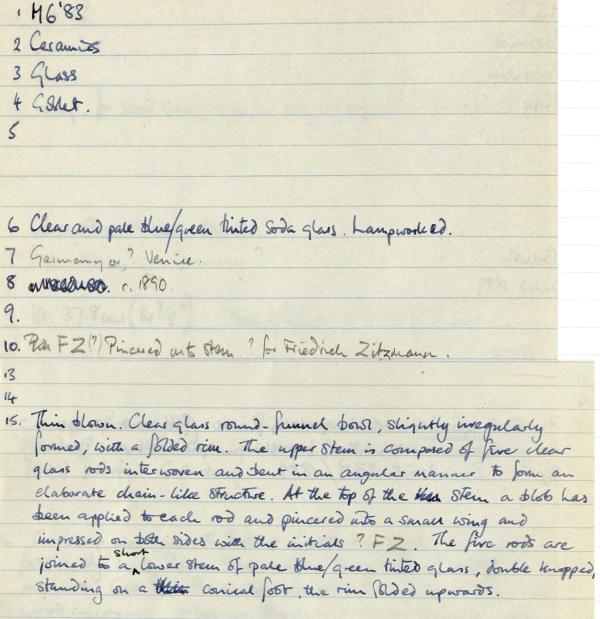 1 MG'83
2 Ceramics
3 Glass
4 Goblet.
5
6 Clear and pale blue/green tinted soda glass. Lampworked.
7 Germany or ? Venice.
8 c. 1890.
9.
10. FZ (?) Pincered onto stem ? for Friedrich Zitzmann.
13
14
15. Thin blown. Clear glass round-funnel bowl, slightly irregularly
formed, with a folded rim. The upper stem is composed of five clear
glass rods interwoven and bent in an angular manner to form an
elaborate chain-like structure. At the top of the stem a blob has
been applied to each rod and pincered into a small wing and
impressed on both sides with the initials ? FZ. The five rods are
joined to a short lower stem of pale blue/green tinted glass, double knopped,
standing on a conical foot, the rim folded upwards.